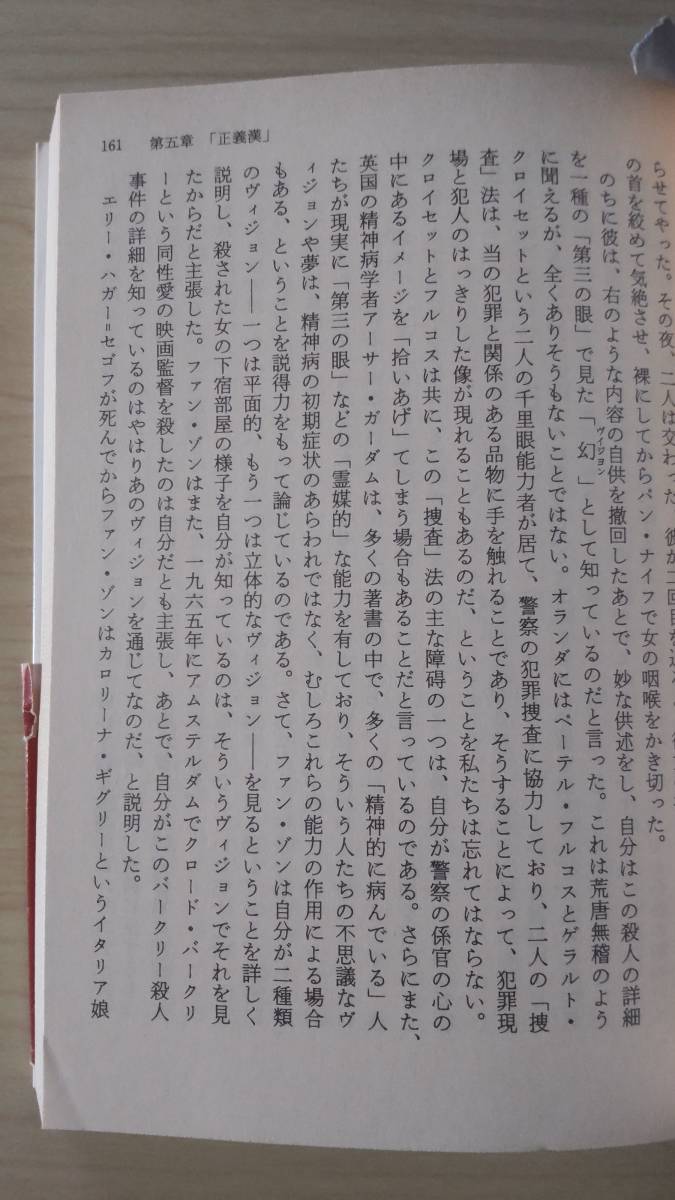 161　第五章　「正義漢」
らせてやった。その夜、二人は交わった
の首を絞めて気絶させ、裸にしてからパン・ナイフで女の咽喉をかき切った。
のちに彼は、右のような内容の自供を撤回したあとで、妙な供述をし、自分はこの殺人の詳細
を一種の「第三の眼」で見た「幻ヴィジョン」として知っているのだと言った。これは荒唐無稽のよう
に聞えるが、全くありそうもないことではない。オランダにはペーテル・フルコスとゲラルト・
クロイセットという二人の千里眼能力者が居て、警察の犯罪捜査に協力しており、二人の「捜
査」法は、当の犯罪と関係のある品物に手を触れることであり、そうすることによって、犯罪現
場と犯人のはっきりした像が現れることもあるのだ、ということを私たちは忘れてはならない。
クロイセットとフルコスは共に、この「捜査」法の主な障碍の一つは、自分が警察の係官の心の
中にあるイメージを「拾いあげ」てしまう場合もあることだと言っているのである。さらにまた、
英国の精神病学者アーサー・ガーダムは、多くの著書の中で、多くの「精神的に病んでいる」人
たちが現実に「第三の眼」などの「霊媒的」な能力を有しており、そういう人たちの不思議なヴ
ィジョンや夢は、精神病の初期症状のあらわれではなく、むしろこれらの能力の作用による場合
もある、ということを説得力をもって論じているのである。さて、ファン・ゾンは自分が二種類
のヴィジョン――一つは平面的、もう一つは立体的なヴィジョン――を見るということを詳しく
説明し、殺された女の下宿部屋の様子を自分が知っているのは、そういうヴィジョンでそれを見
たからだと主張した。ファン・ゾンはまた、一九六五年にアムステルダムでクロード・バークリ
ーという同性愛の映画監督を殺したのは自分だとも主張し、あとで、自分がこのバークリー殺人
事件の詳細を知っているのはやはりあのヴィジョンを通じてなのだ、と説明した。
エリー・ハガー=セゴフが死んでからファン・ゾンはカロリーナ・ギグリーというイタリア娘